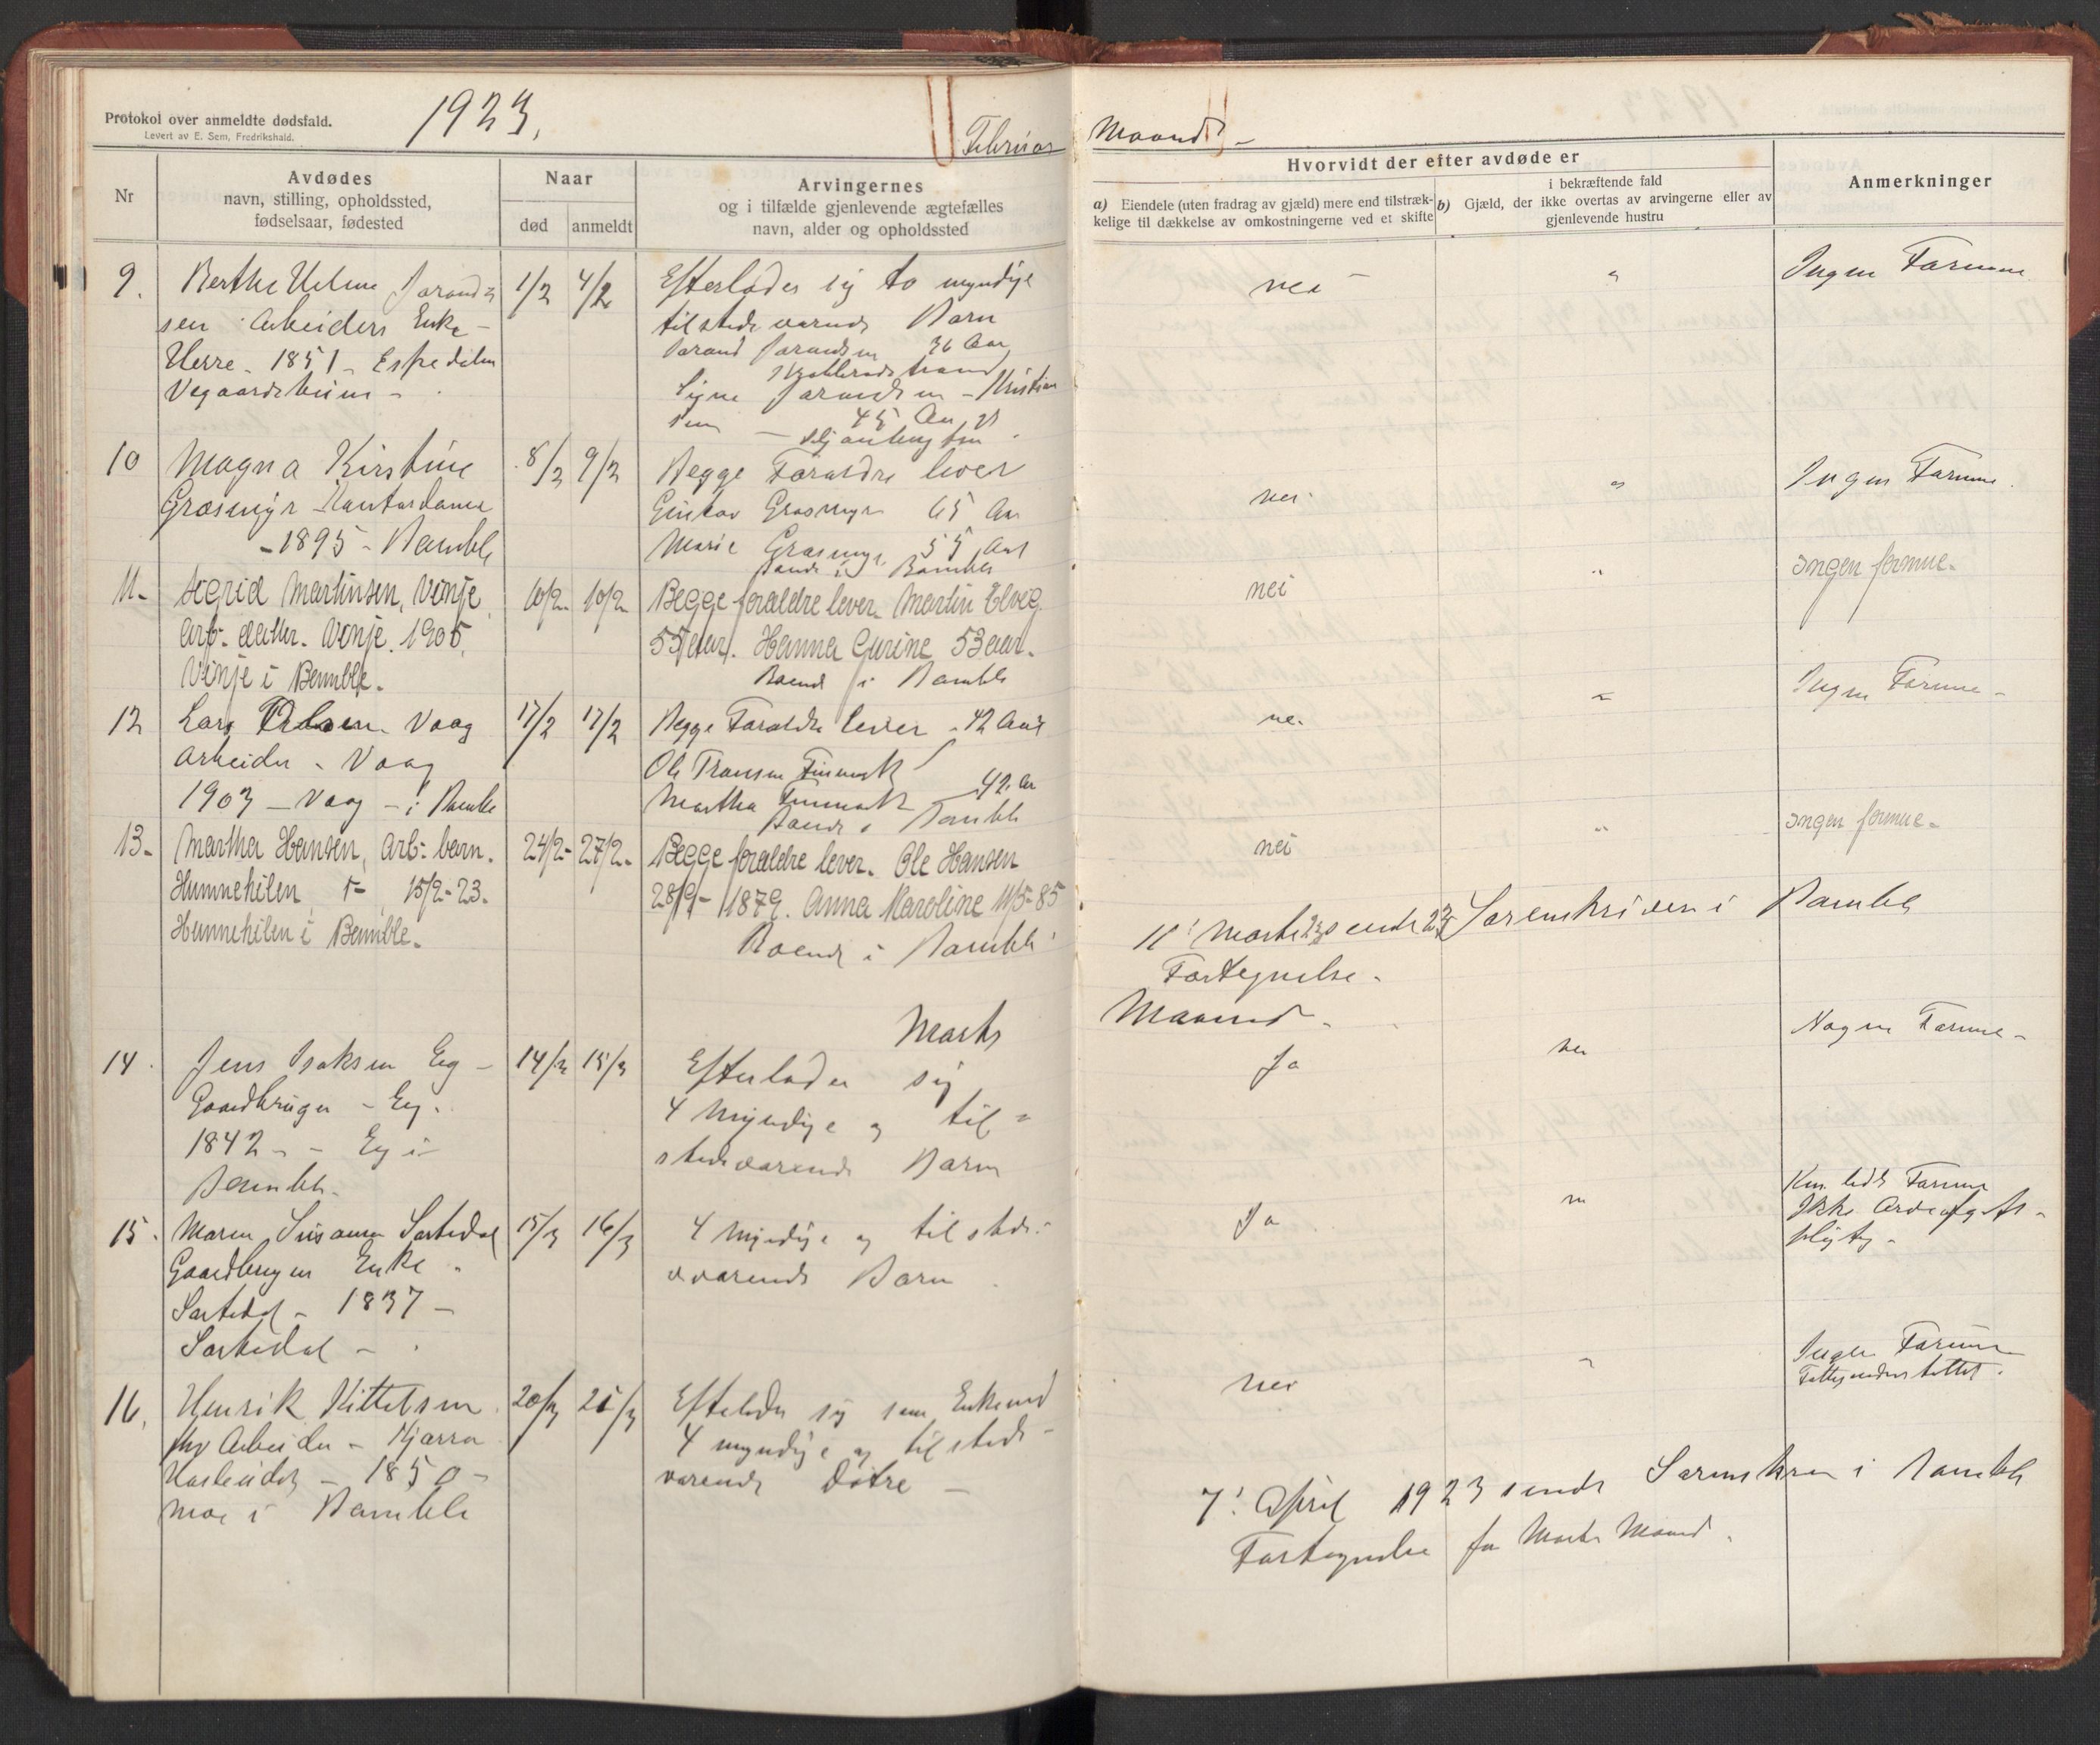 Protokol over anmeldte dødsfald.
Levert av E. Sem, Fredrikshald.
1923,
Februar Maaned
Nr
Avdødes
navn, stilling, opholdssted,
fødselsaar, fødested
Naar
død
anmeldt
Arvingernes
og i tilfælde gjenlevende ægtefælles
navn, alder og opholdssted
Hvorvidt der efter avdøde er
a) Eiendele (uten fradrag av gjæld) mere end tilstræk-
kelige til dækkelse av omkostningerne ved et skifte
i bekræftende fald
b) Gjæld, der ikke overtas av arvingerne eller av
gjenlevende hustru
Anmerkninger
9. Berthe Helene
sen Arbeiders Enke -
Herre - 1851 - Espedalen
Vegaardsheim -
1/2 4/2
Efterlader sig to myndige
tilstedeværende Barn
36 Aar
Signe - Kristian
sen 45 Aar
nei "
Ingen Formue
10 Magna Kirstine
Grasmyr
- 1895 - Bamble
8/2 9/2
Begge Forældre lever
Gustav Grasmyr 65 Aar
Marie Grasmyr 55 Aar
Bamble
nei "
Ingen Formue.
11. Sigrid Martinsen, Vinje
Arb. datter. Vinje. 1905.
Vinje i Bamble.
10/2 10/2
Begge forældre lever. Martin Elveg.
55 aar. Hanna Gurine 53 aar.
Boende i Bamble
nei "
Ingen formue.
12 Lars Olsen Vaag
Arbeider - Vaag
1903 - Vaag - i Bamble
17/2 17/2
Begge Forældre lever - 42 Aar
Ole Finmark
Martha Finmark 42 Aar
Boende i Bamble
nei "
Ingen Formue -
13. Martha Hansen, Arb. barn.
Hummekilen, 15/2-23.
Hummekilen i Bamble.
24/2- 27/2.
Begge forældre lever. Ole Hansen
28/9- 1879. Anna Karoline 11/5-85
Boende i Bamble
nei "
Ingen formue.
Sorenskriveren i Bamble
Fortegnelse -
Marts Maaned -
14. Jens Isaksen Eeg -
Gaardbruger - Eeg.
1842 - - Eeg i
Bamble.
14/3 15/3
Efterlader sig
4 Myndige og til-
stedeværende Barn
Ja nei
Nogen Formue -
15. Maren Susanne Sortedal
Gaardbruger Enke.
Sortedal - 1837 -
Sortedal -
15/3 16/3
4 Myndige og tilstede-
værende Barn
Ja
Kun lidt Formue
Ikke Arveafgifts-
pligtig -
16. Henrik Kittelsen
fhv Arbeider -
1850 -
i Bamble
20/3 21/3
Efterlader sig som Enkemand
4 myndige og tilstede-
værende Døtre -
nei "
Ingen Formue
Fattigunderstøttet.
7' April 1923 sendt Sorenskriv i Bamble
Fortegnelse for Marts Maaned.